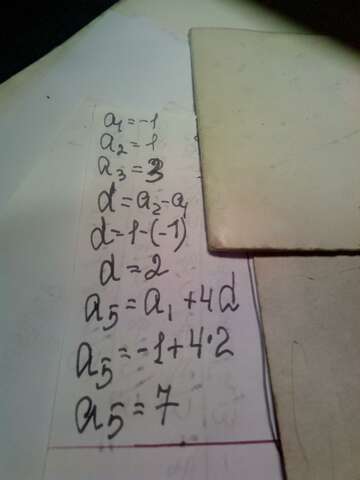 a₁=-1
a₂=1
a₃=3
d=a₂-a₁
d=1-(-1)
d=2
a₅=a₁+4d
a₅=-1+4·2
a₅=7